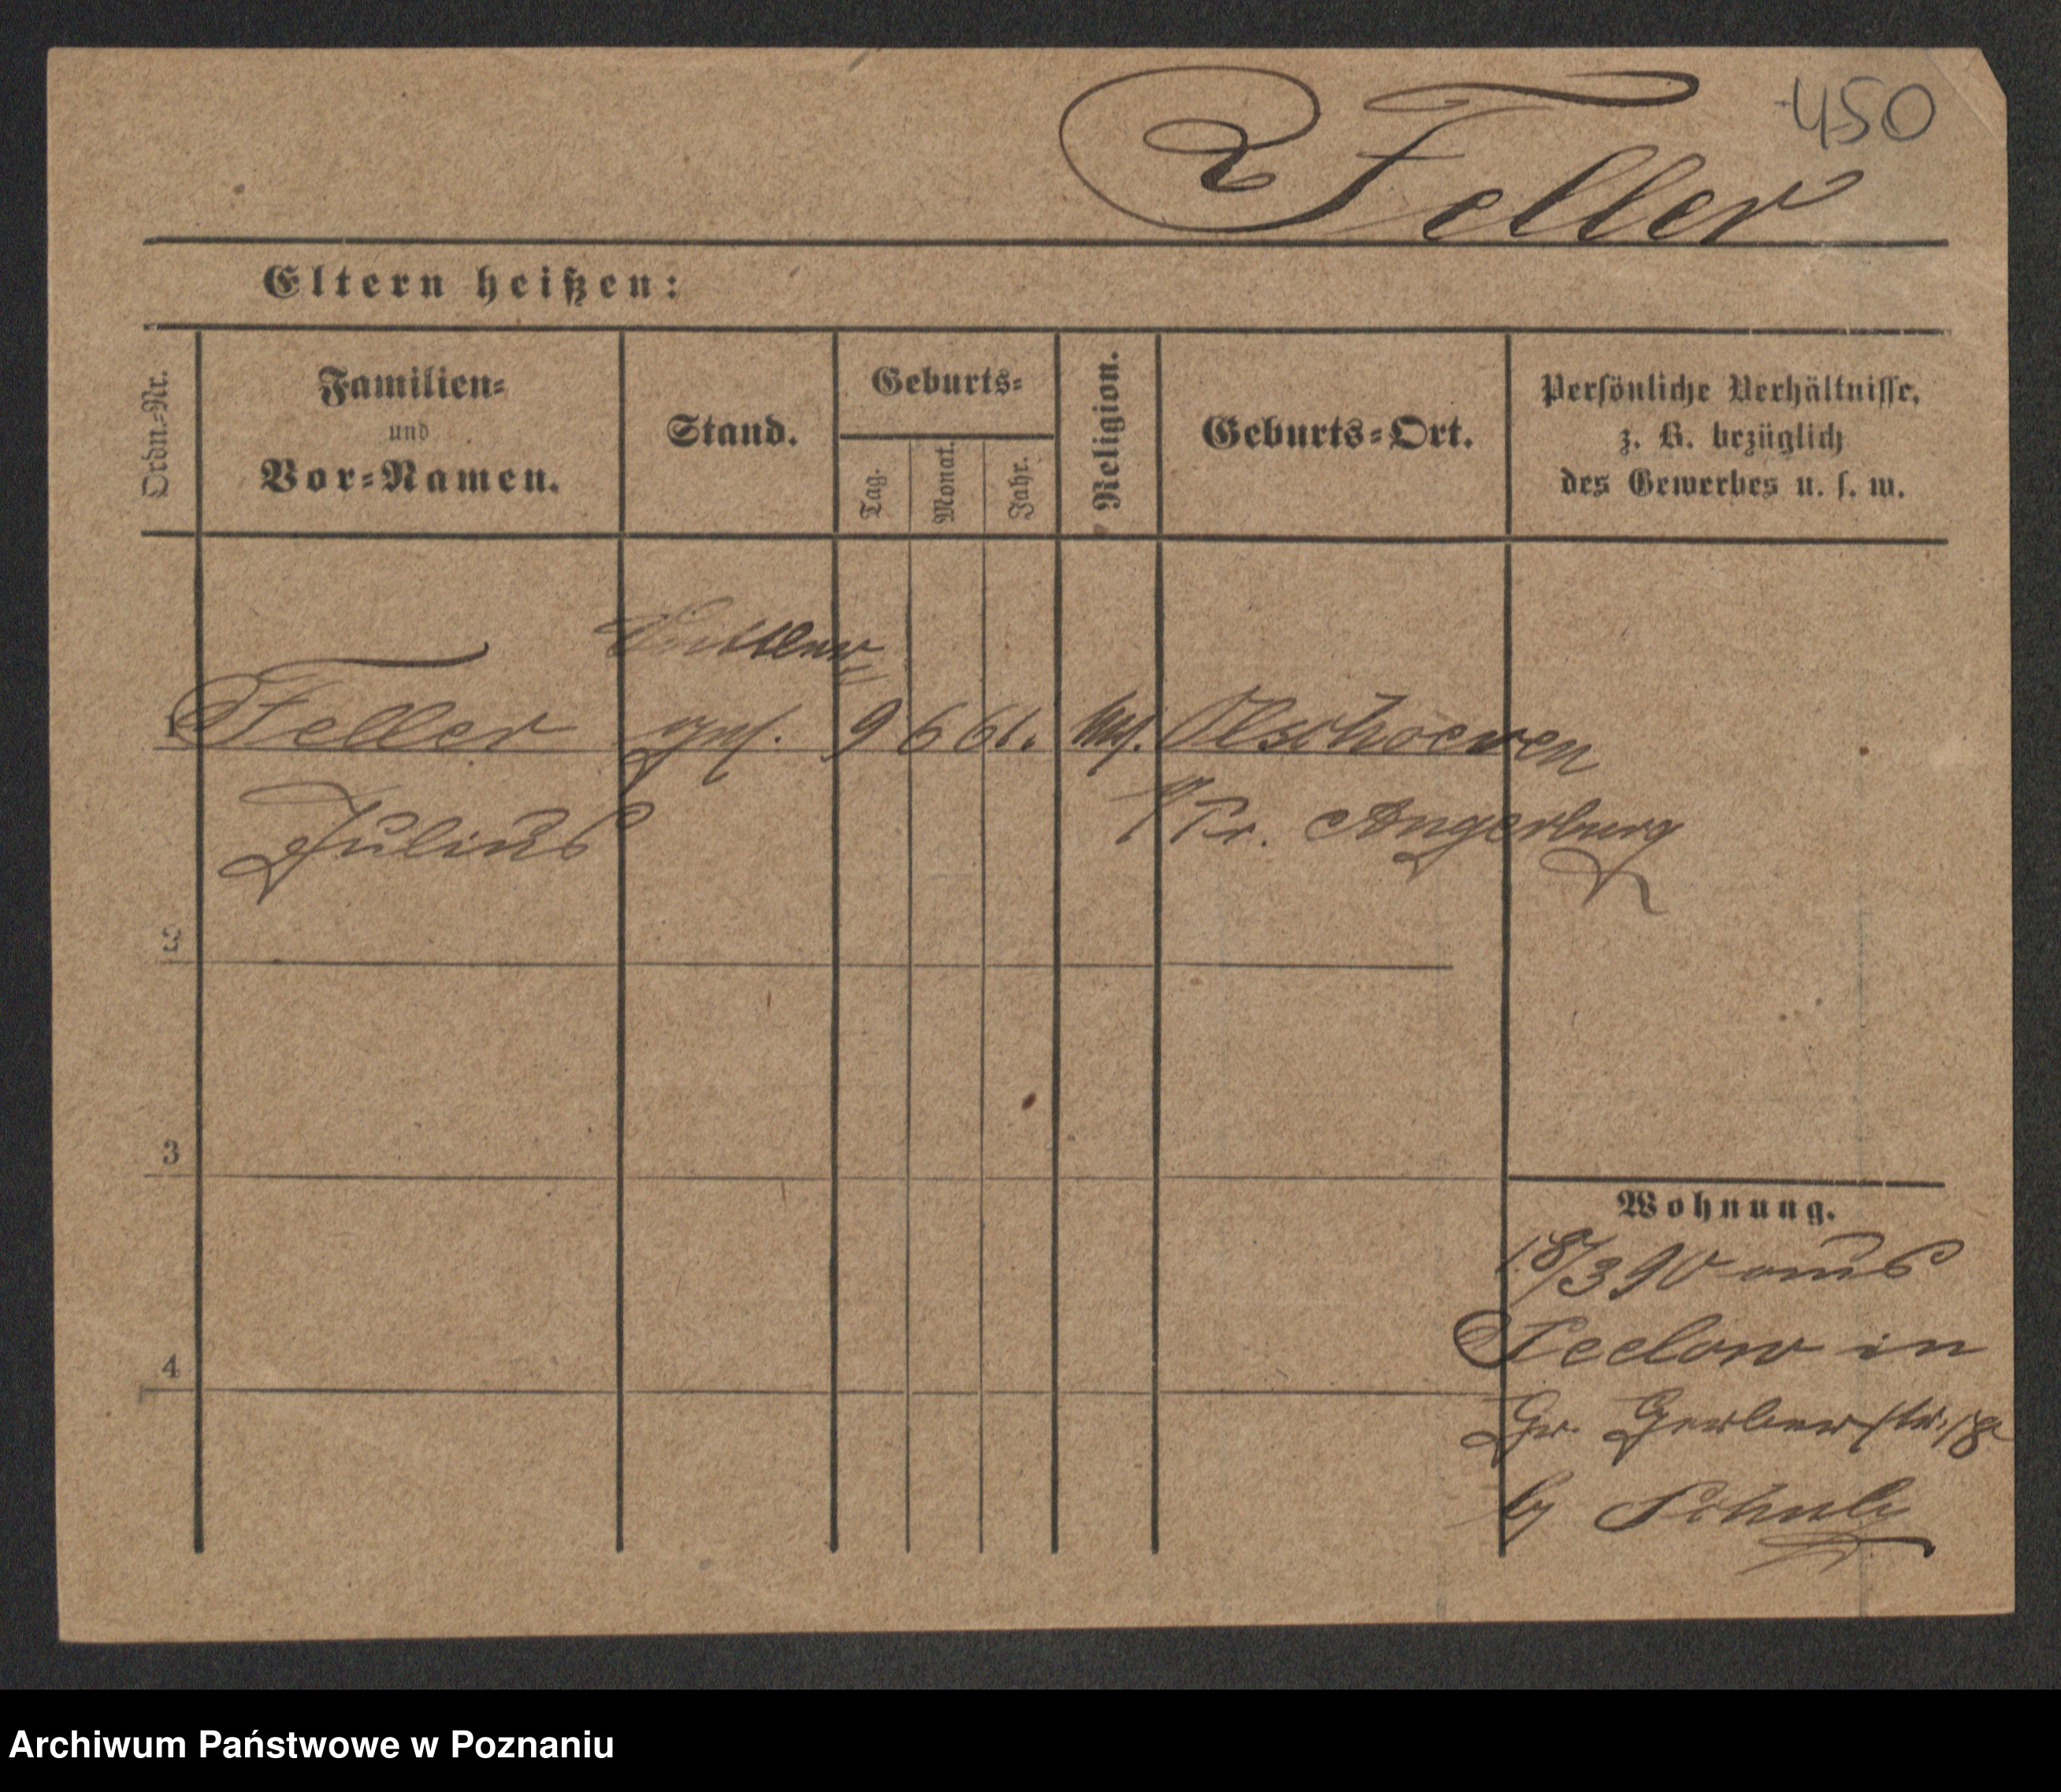 450
Feller
Eltern heißen:
Ordn.-Nr.
Familien-
und
Vor-Namen.
Stand.
Geburts-
Tag.
Monat.
Jahr.
Religion.
Geburts-Ort.
Persönliche Verhältnisse,
z. B. bezüglich
des Gewerbes u. s. w.
1 Feller 9 6 61. Olschoewen
Julius Kr. Angerburg
2
3
4
Wohnung.
18/3 90 aus
Seelow in
Gr. Gerberstr. 18
b/ Schulz
Archiwum Państwowe w Poznaniu